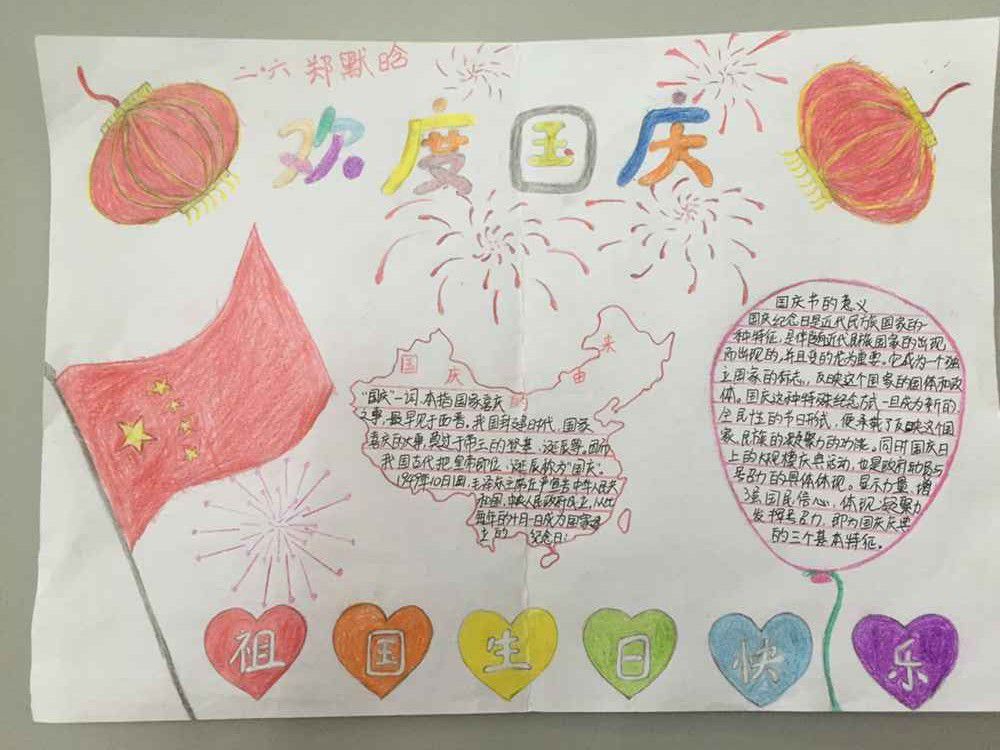 二.六 郑默晗
欢度国庆
国庆
来
由
的
"国庆"一词,本指国家喜庆
之事,最早见于西晋。我国封建时代、国家
喜庆的大事,莫过于帝王的登基、诞辰等。因而
我国古代把皇帝即位、诞辰称为"国庆"。
1949年10月1日,毛泽东
和国,中央人民政府成立,
每年的十月一日成为国家
立的 纪念日;
国庆节的意义
国庆纪念日是近代民族国家的一
种特征,是伴随近代民族国家的出现
而出现的,并且变的尤为重要。它成为一个独
立国家的标志,反映这个国家的国体和政
体。国庆这种特殊纪念方式一旦成为新的、
全民性的节日形式,便承载了反映这个国
家、民族的凝聚力的功能。同时国庆日
上的大规模庆典活动,也是政府动员与
号召力的具体体现。显示力量、增
强国民信心,体现凝聚力
发挥号召力,即为国庆庆典
的三个基本特征。
祖国生日快乐